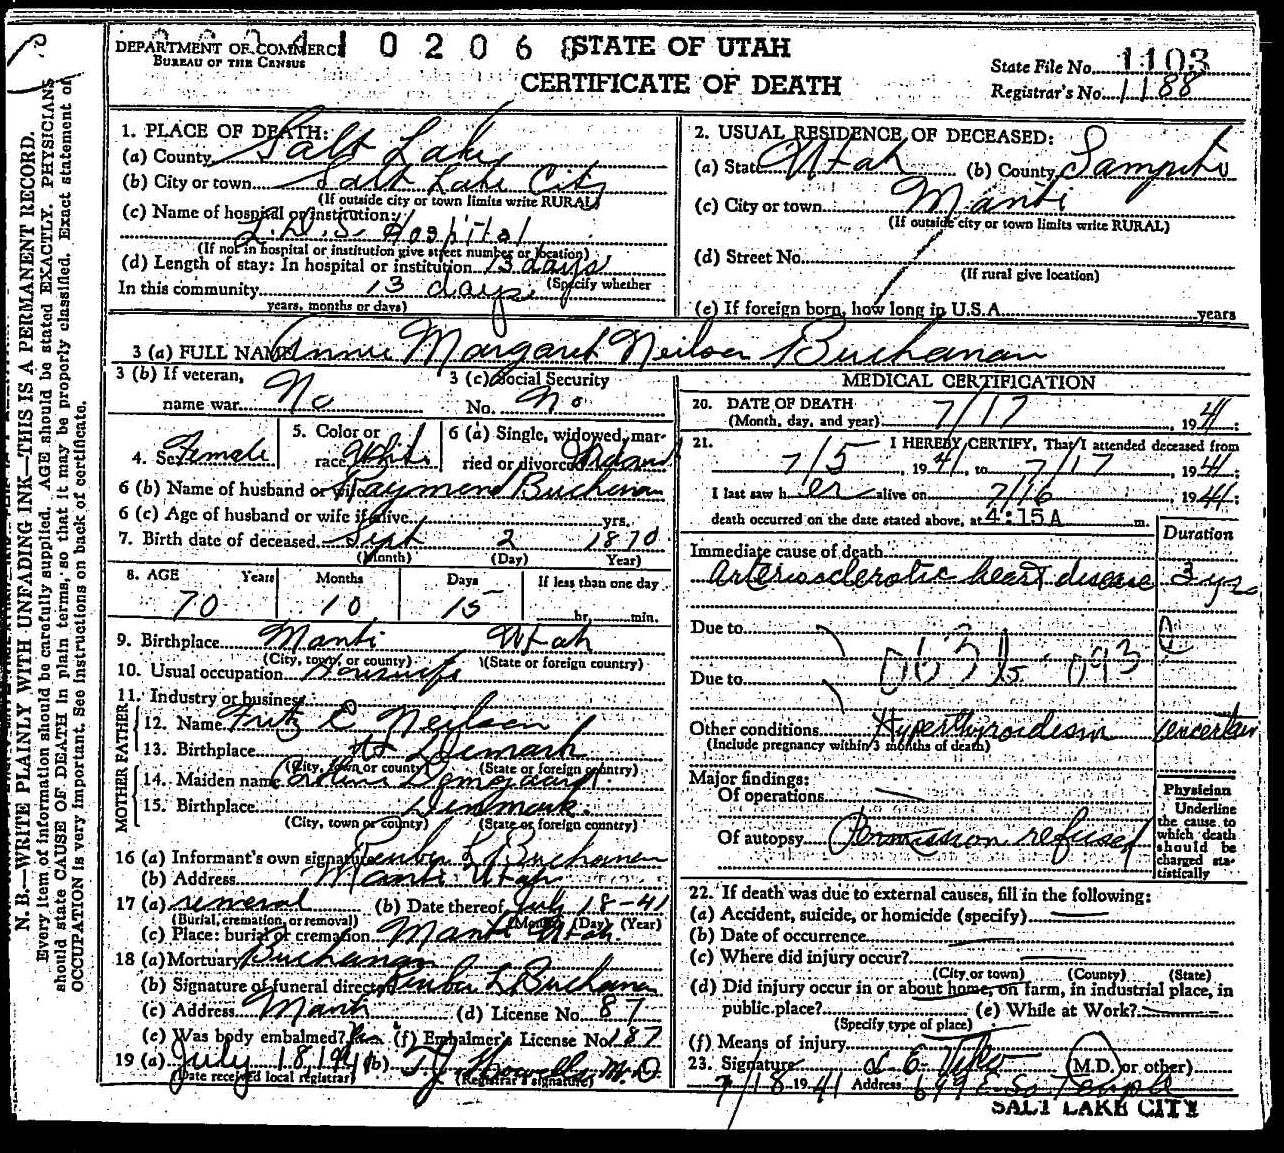 DEPARTMENT OF COMMERCE
BUREAU OF THE CENSUS
1 0 2 0 6
STATE OF UTAH
CERTIFICATE OF DEATH
State File No. 1103
Registrar's No. 1188
N. B.—WRITE PLAINLY WITH UNFADING INK—THIS IS A PERMANENT RECORD.
Every item of information should be carefully supplied. AGE should be stated EXACTLY. PHYSICIANS
should state CAUSE OF DEATH in plain terms, so that it may be properly classified. Exact statement of
OCCUPATION is very important. See instructions on back of certificate.
1. PLACE OF DEATH:
(a) County Salt Lake
(b) City or town Salt Lake City
(If outside city or town limits write RURAL)
(c) Name of hospital or institution:
L.D.S. Hospital
(If not in hospital or institution give street number or location)
(d) Length of stay: In hospital or institution 13 days
(Specify whether
In this community 13 days
years, months or days)
2. USUAL RESIDENCE OF DECEASED:
(a) State Utah (b) County Sanpete
(c) City or town Manti
(If outside city or town limits write RURAL)
(d) Street No.
(If rural give location)
(e) If foreign born, how long in U.S.A. years
3 (a) FULL NAME Annie Margaret Neilsen Buchanan
3 (b) If veteran,
name war No
3 (c) Social Security
No. No
4. Sex Female
5. Color or
race White
6 (a) Single, widowed, mar-
ried or divorced
6 (b) Name of husband or wife Raymond Buchanan
6 (c) Age of husband or wife if alive yrs.
7. Birth date of deceased Sept 2 1870
(Month) (Day) Year)
8. AGE Years Months Days If less than one day
70 10 15 hr. min.
9. Birthplace Manti Utah
(City, town, or county) (State or foreign country)
10. Usual occupation Housewife
11. Industry or business
FATHER
12. Name Fritz C Neilsen
13. Birthplace Denmark
(City, town or county) (State or foreign country)
MOTHER
14. Maiden name
15. Birthplace Denmark
(City, town or county) (State or foreign country)
16 (a) Informant's own signature Reuben L Buchanan
(b) Address Manti Utah
17 (a) removal (b) Date thereof July 18-41
(Burial, cremation, or removal) (Month) (Day) (Year)
(c) Place: burial or cremation Manti Utah
18 (a) Mortuary Buchanan
(b) Signature of funeral director Reuben L Buchanan
(c) Address Manti (d) License No. 87
(e) Was body embalmed? (f) Embalmer's License No. 187
19 (a) July 18, 1941 (b) T J Howells M.D.
Date received local registrar) (Registrar's signature)
MEDICAL CERTIFICATION
20. DATE OF DEATH
(Month, day, and year) 7/17, 1941;
21. I HEREBY CERTIFY, That I attended deceased from
7/5, 1941, to 7/17, 1941;
I last saw her alive on 7/16 1941;
death occurred on the date stated above, at 4:15A m.
Duration
Immediate cause of death
Arteriosclerotic heart disease 3 yrs
Due to
093
Due to
Other conditions Hyperthyroidism uncertain
(Include pregnancy within 3 months of death)
Major findings:
Of operations
Of autopsy Permission refused
Physician
Underline
the cause to
which death
should be
charged sta-
tistically
22. If death was due to external causes, fill in the following:
(a) Accident, suicide, or homicide (specify)
(b) Date of occurrence
(c) Where did injury occur?
(City or town) (County) (State)
(d) Did injury occur in or about home, on farm, in industrial place, in
public place? (e) While at Work?
(Specify type of place)
(f) Means of injury
23. Signature L. E. Viko (M.D. or other)
7/18 1941 Address 699 E. So. Temple
SALT LAKE CITY